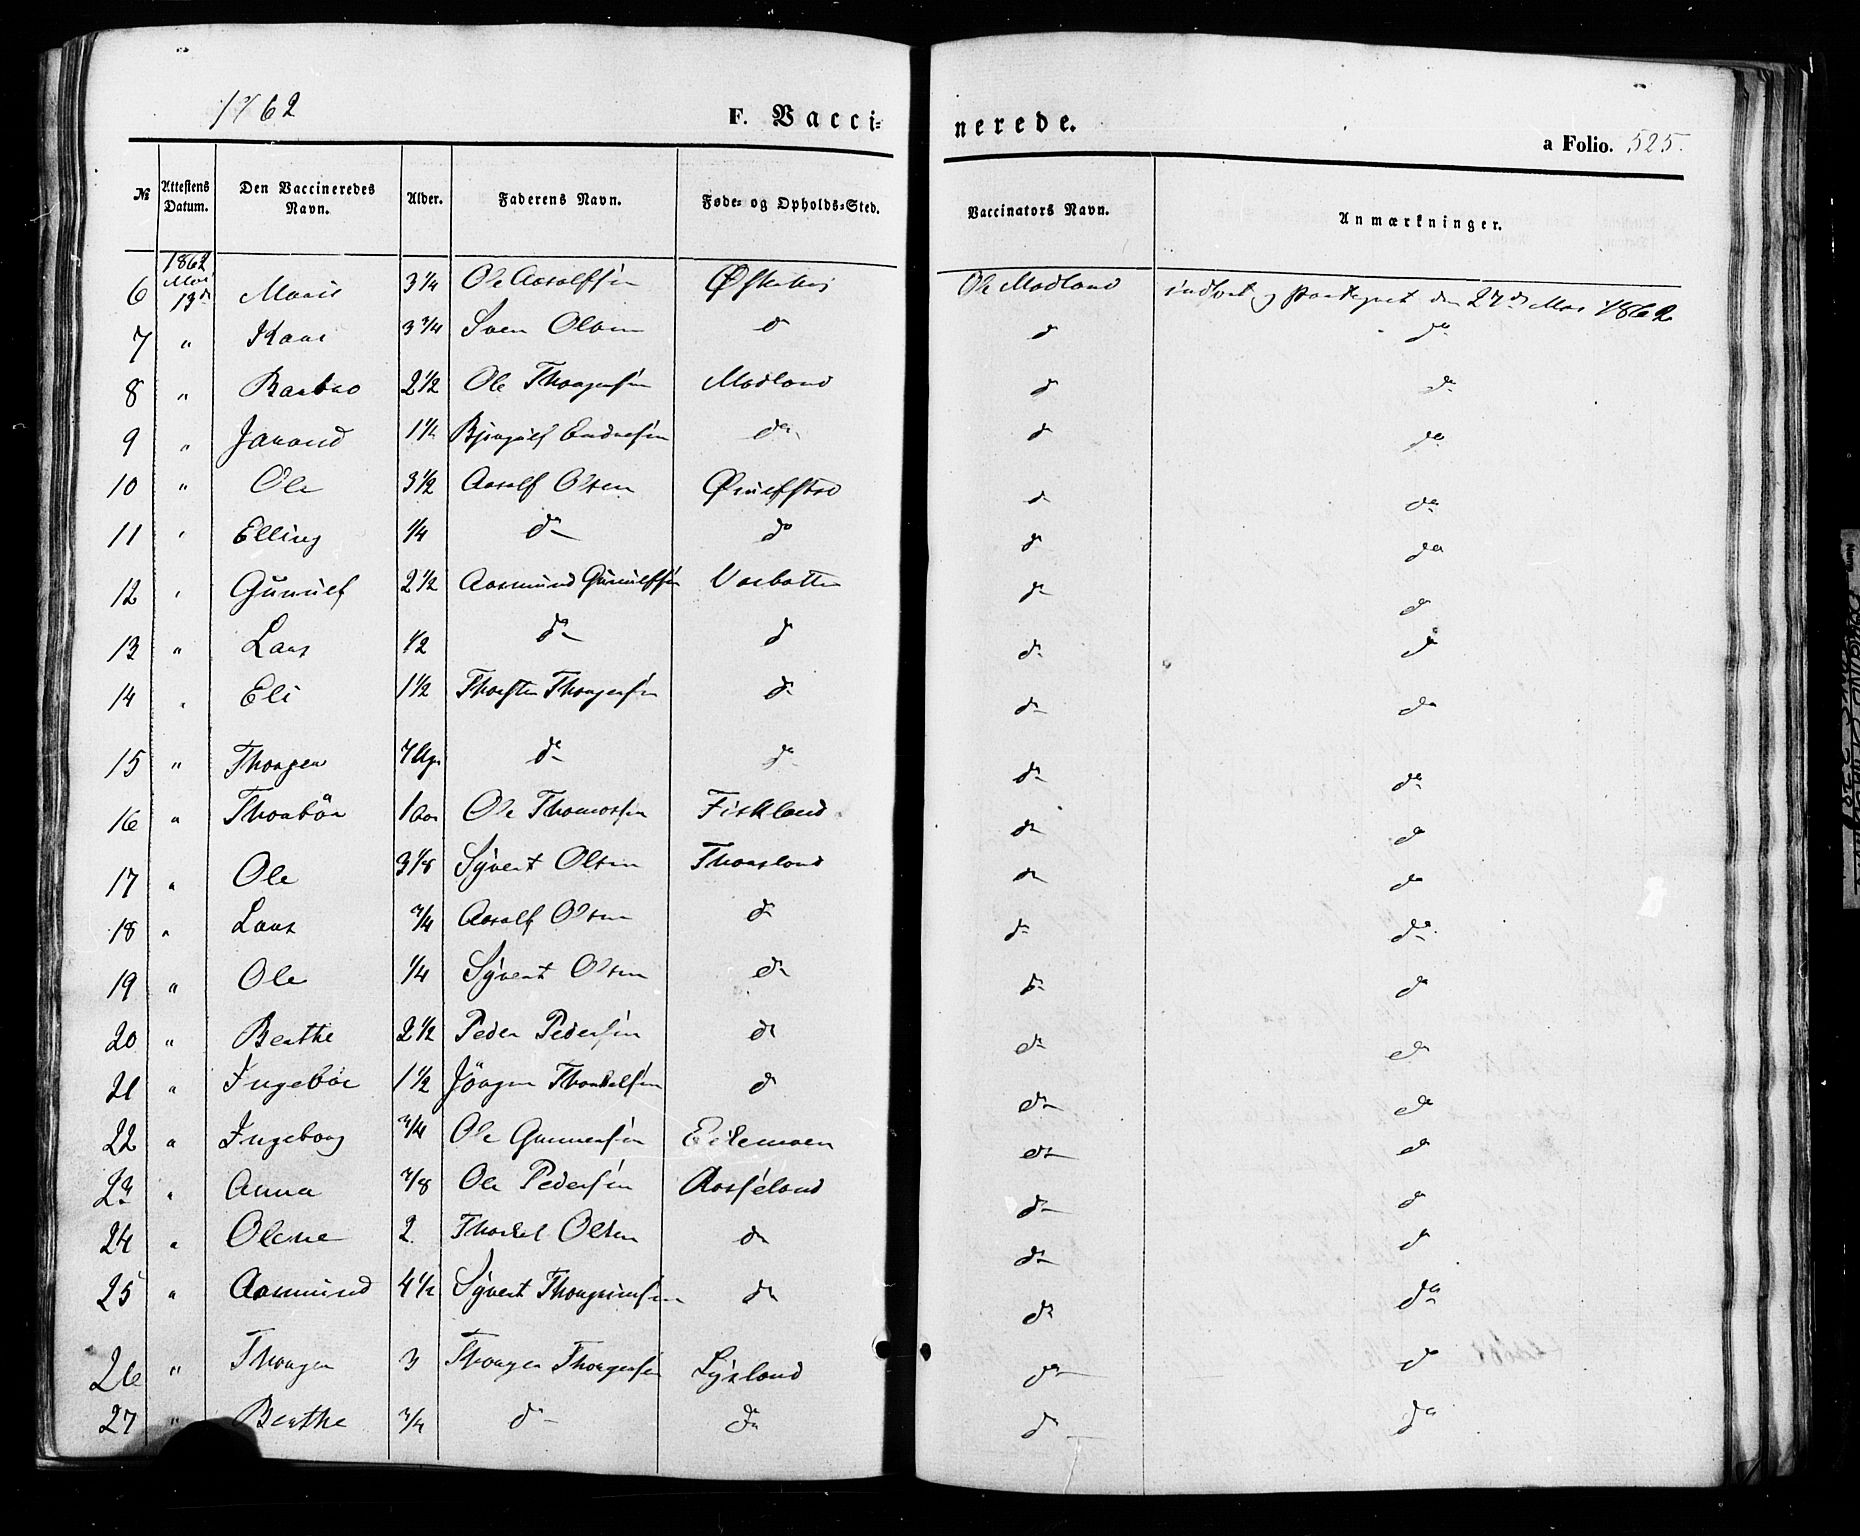 1862
F. Vacci-
nerede.
a Folio. 525.
№ Attestens Datum. Den Vaccineredes Navn. Alder. Faderens Navn. Føde- og Opholds-Sted. Vaccinators Navn. Anmærkninger.
1862
6 Mai 13de Marie 3 1/4 Ole Aasolfsen Ole Modland indført og paategnet den 27de Mai 1862
7 " 3 3/4 Sven Olsen do do do
8 " Barbro 2 1/2 Ole Thorgersen Modland do do
9 " Jorand 1 1/2 Bjørgulf Endresen do do do
10 " Ole 3 1/2 Aasolf Olsen do do
11 " Elling 1/4 do do do do
12 " Gunulf 2 1/2 Aasmund Gunulfsen Vasbotten do do
13 " Lars 1/2 do do do do
14 " Eli 1 1/2 Thorsten Thorgersen do do do
15 " Thorger 7 Uger do do do do
16 " Thorbör 1 aar Ole Thomassen Fiskland do do
17 " Ole 3 1/8 Syvert Olsen Thorsland do do
18 " Lars 3/4 Aasolf Olsen do do do
19 " Ole 1/4 Syvert Olsen do do do
20 " Berthe 2 1/2 Peder Pedersen do do do
21 " Ingebör 1 1/2 Jörgen Thorkelsen do do do
22 " Ingeborg 3/4 Ole Gunnersen Eilemoen do do
23 " Anna 7/8 Ole Pedersen Aaseland do do
24 " Olene 2 Thorkel Olsen do do do
25 " Aasmund 4 1/2 Syvert Thorgrimsen do do do
26 " Thorger 3 Thorger Thorgersen Lysland do do
27 " Berthe 3/4 do do do do